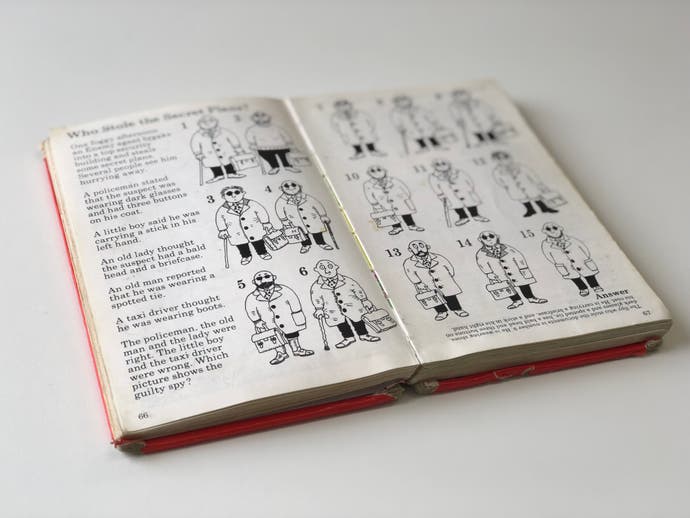 Who Stole the Secret Plans?
One foggy afternoon
an Enemy agent breaks
into a top security
building and steals
some secret plans.
Several people see him
hurrying away.
A policeman stated
that the suspect was
wearing dark glasses
and had three buttons
on his coat.
A little boy said he was
carrying a stick in his
left hand.
An old lady thought
the suspect had a bald
head and a briefcase.
An old man reported
that he was wearing a
spotted tie.
A taxi driver thought
he was wearing boots.
The policeman, the old
man and the lady were
right. The little boy
and the taxi driver
were wrong. Which
picture shows the
guilty spy?
66
1
3
4
5
6
10
13
14
15
Answer
67